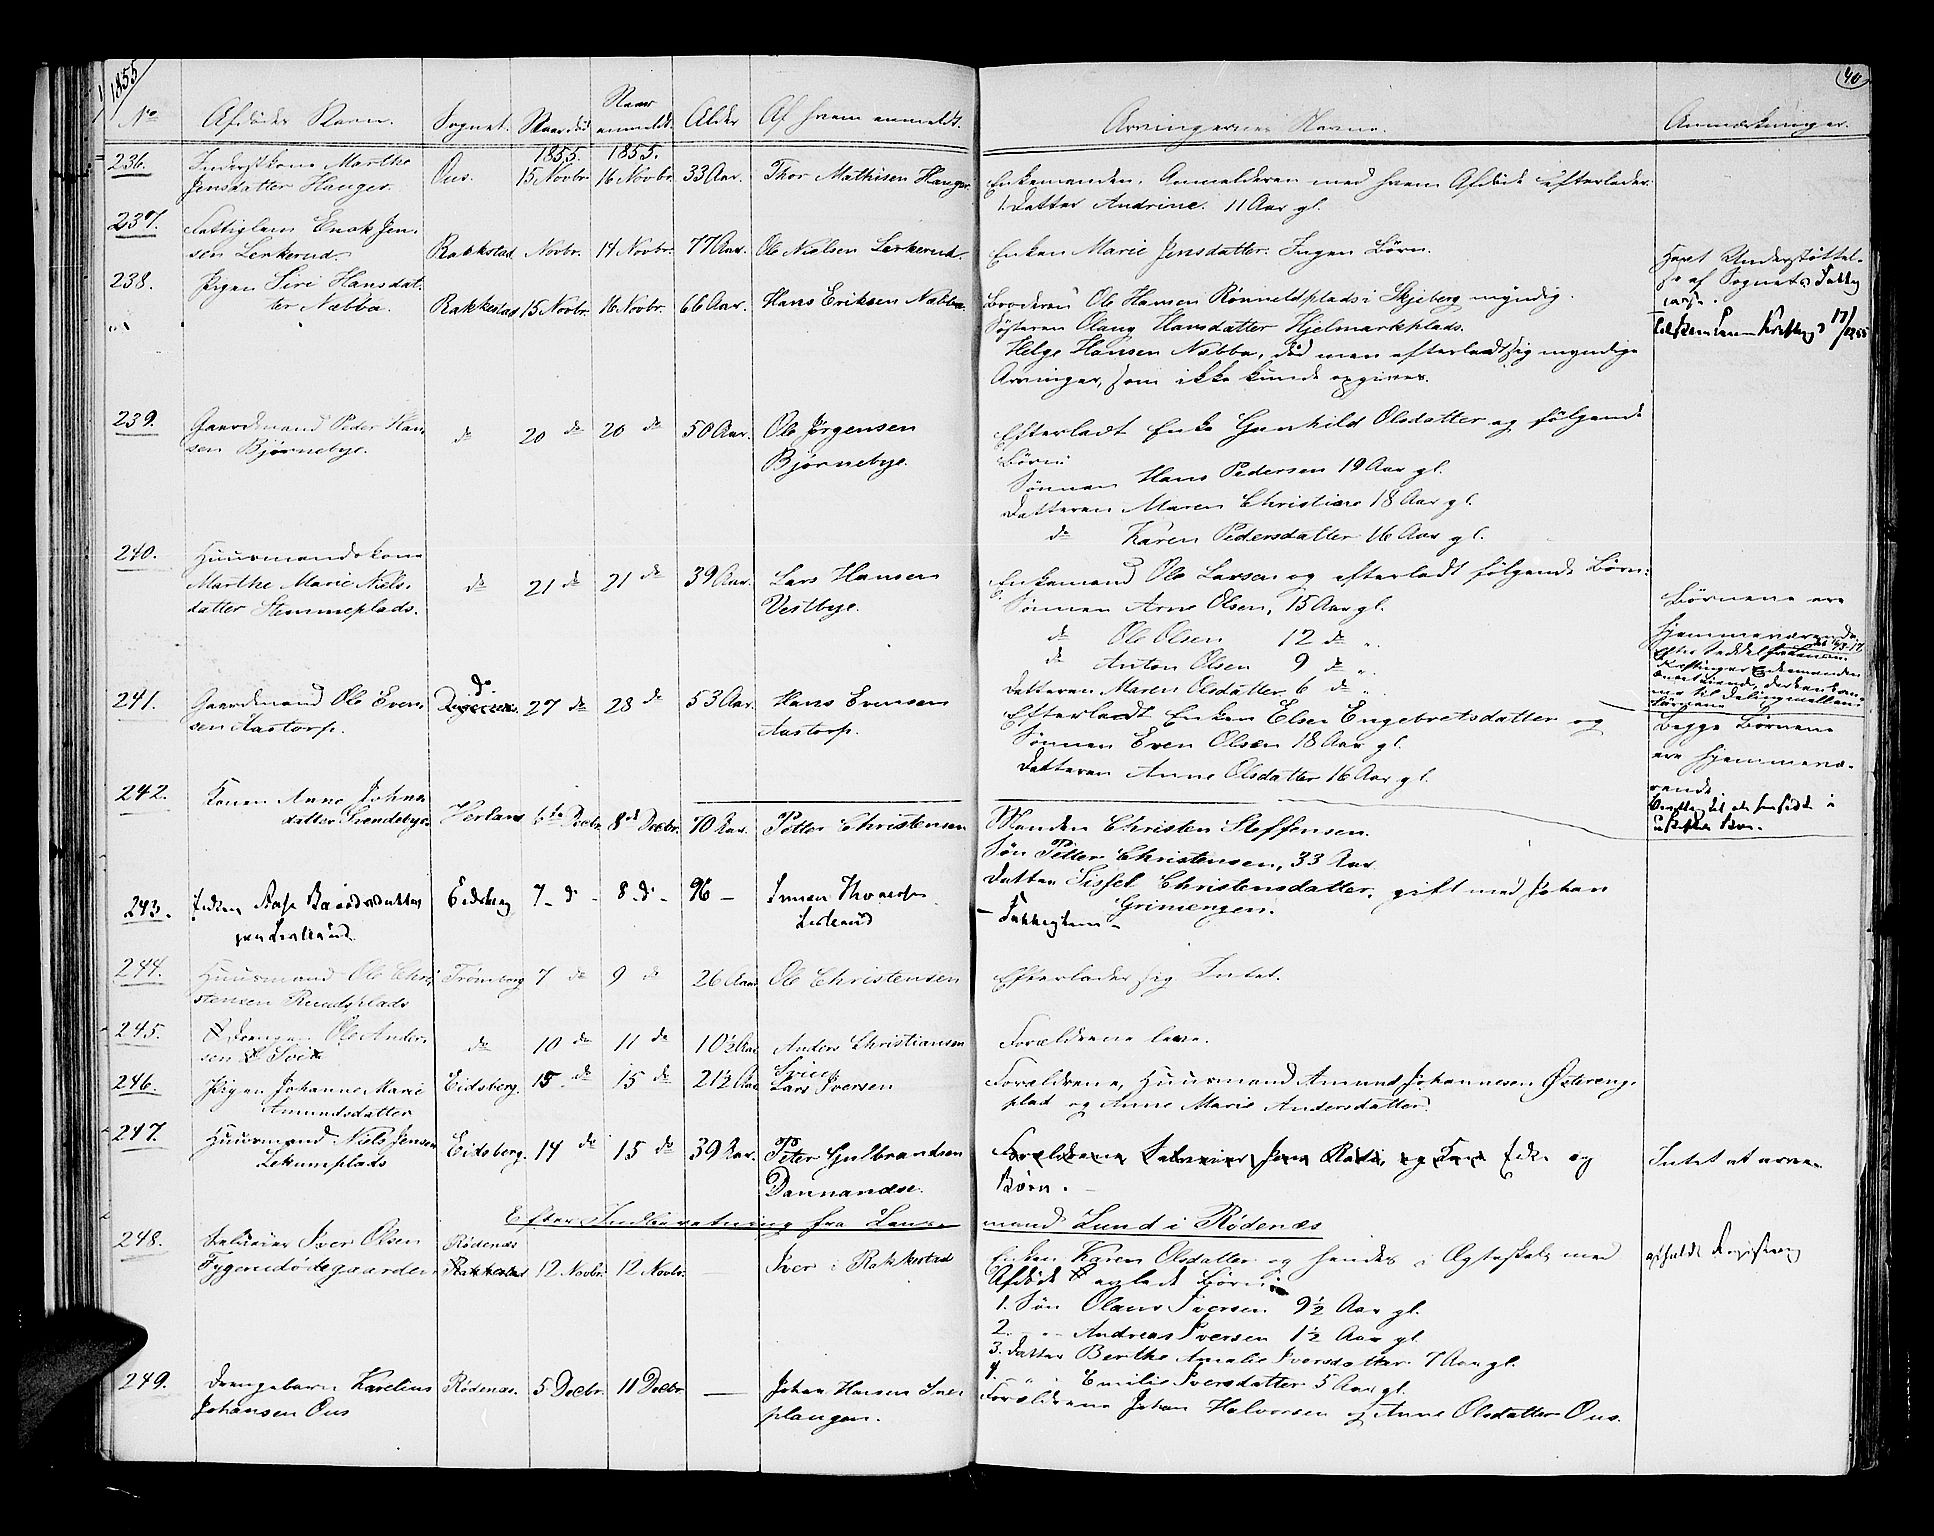 1855
40
No Afdødes Navn. Sognet. Naar død Naar anmeldt. Alder Af hvem anmeldt. Arvingernes Navne. Anmærkninger.
1855. 1855.
236. Inderstkone Marthe Ous. 15 Novbr. 16 Novbr. 33 Aar. Thor Mathisen Hanger Enkemanden, Anmelderen med hvem Afdøde efterlader
Jensdatter Hanger. 1 Datter Andrine. 11 Aar gl.
237. Fattiglem Enok Jen-
sen Lerkerud. Rakkestad Novbr. 14 Novbr. 77 Aar. Ole Nielsen Lerkerud. Enken Marie Jensdatter. Ingen Børn. Havt Understøttel-
se af Sognets Fattig
238. Pigen Siri Hansdat-
ter Næbba. Rakkestad 15 Novbr. 16 Novbr. 66 Aar. Hans Eriksen Næbba Broderen Ole Hansen Rønneldplads i Skjeberg myndig.
Søsteren Olaug Hansdatter Hjelmarkplads.
Helge Hansen Næbba, død men efterladt sig myndige
Arvinger, som ikke kunde opgives.
239. Gaardmand Peder Han- do 20 do 20 do 50 Aar. Ole Jørgensen Efterladt Enke Gunhild Olsdatter og følgende
sen Bjørnebye. Bjørnebye. Børn:
Sønnen Hans Pedersen 19 Aar gl.
Datteren Maren Christine 18 Aar gl.
do Karen Pedersdatter 16 Aar gl.
240. Huusmandskone
Marthe Marie Niels- do 21 do 21 do 39 Aar. Lars Hansen Enkemand Ole Larsen og efterladt følgende Børn:
datter Stemmeplads. Vestbye. Sønnen Arne Olsen, 15 Aar gl. Børnene ere
do Ole Olsen 12 do hjemmeværende
do Anton Olsen 9 do
Datteren Maren Olsdatter 6 do
241. Gaardmand Ole Even- do 27 do 28 do 53 Aar. Hans Evensen Efterladt Enken Else Engebretsdatter og Begge Børnene
sen Aastorp. Aastorp. Sønnen Even Olsen 18 Aar gl. ere hjemmevæ-
Datteren Anne Olsdatter 16 Aar gl. rende
242. Konen Anne Johns-
datter Svendebye Herland 6te Decbr. 8de Decbr. 70 Aar. Petter Christensen Manden Christen Steffensen.
Søn Petter Christensen, 33 Aar
Datter Sissel Christensdatter, gift med Johan
Grimengen.
243. Enken Aase Baardsdatter Eidsberg 7 d 8 d 96 — Fattiglem
244. Huusmand Ole Chri- Trømborg 7 do 9 do 26 Aar Ole Christensen Efterlader sig Intet.
stensen Ruudsplads
245. Drengen Ole Ander- do 10 do 11 do 10½ Aar Anders Christiansen Forældrene leve.
sen
246. Pigen Johanne Marie Eidsberg. 15 do 15 do 21½ Aar Lars Iversen Forældrene, Huusmand Amund Johannesen Østereng-
Amundsdatter plad og Anne Marie Andersdatter.
247. Huusmand Niels Jensen Eidsberg. 14 do 15 do 39 Aar. Peter Gulbrandsen Forældrene Enke og Intet at arve
Lekumplads Dannandse. Børn.
Efter Indberetning fra Lens- mand Lund i Rødenæs
248. Selveier Iver Olsen Rødenæs Enken Karen Olsdatter og hendes i Ægteskab med
Rakkestad 12 Novbr. 12 Novbr. — Iver i Rakkestad Afdøde avlede Børn:
1. Søn Olaus Iversen 9½ Aar gl.
2. Andreas Iversen 1½ Aar gl.
3. Datter Berthe Amalie Iversdatter 7 Aar gl.
4. Emilie Iversdatter 5 Aar gl.
249. Drengebarn Karelius Rødenæs. 5 Decbr. 11 Decbr — Johan Hansen Forældrene Johan Halvorsen og Anne Olsdatter Ous.
Johansen Ous